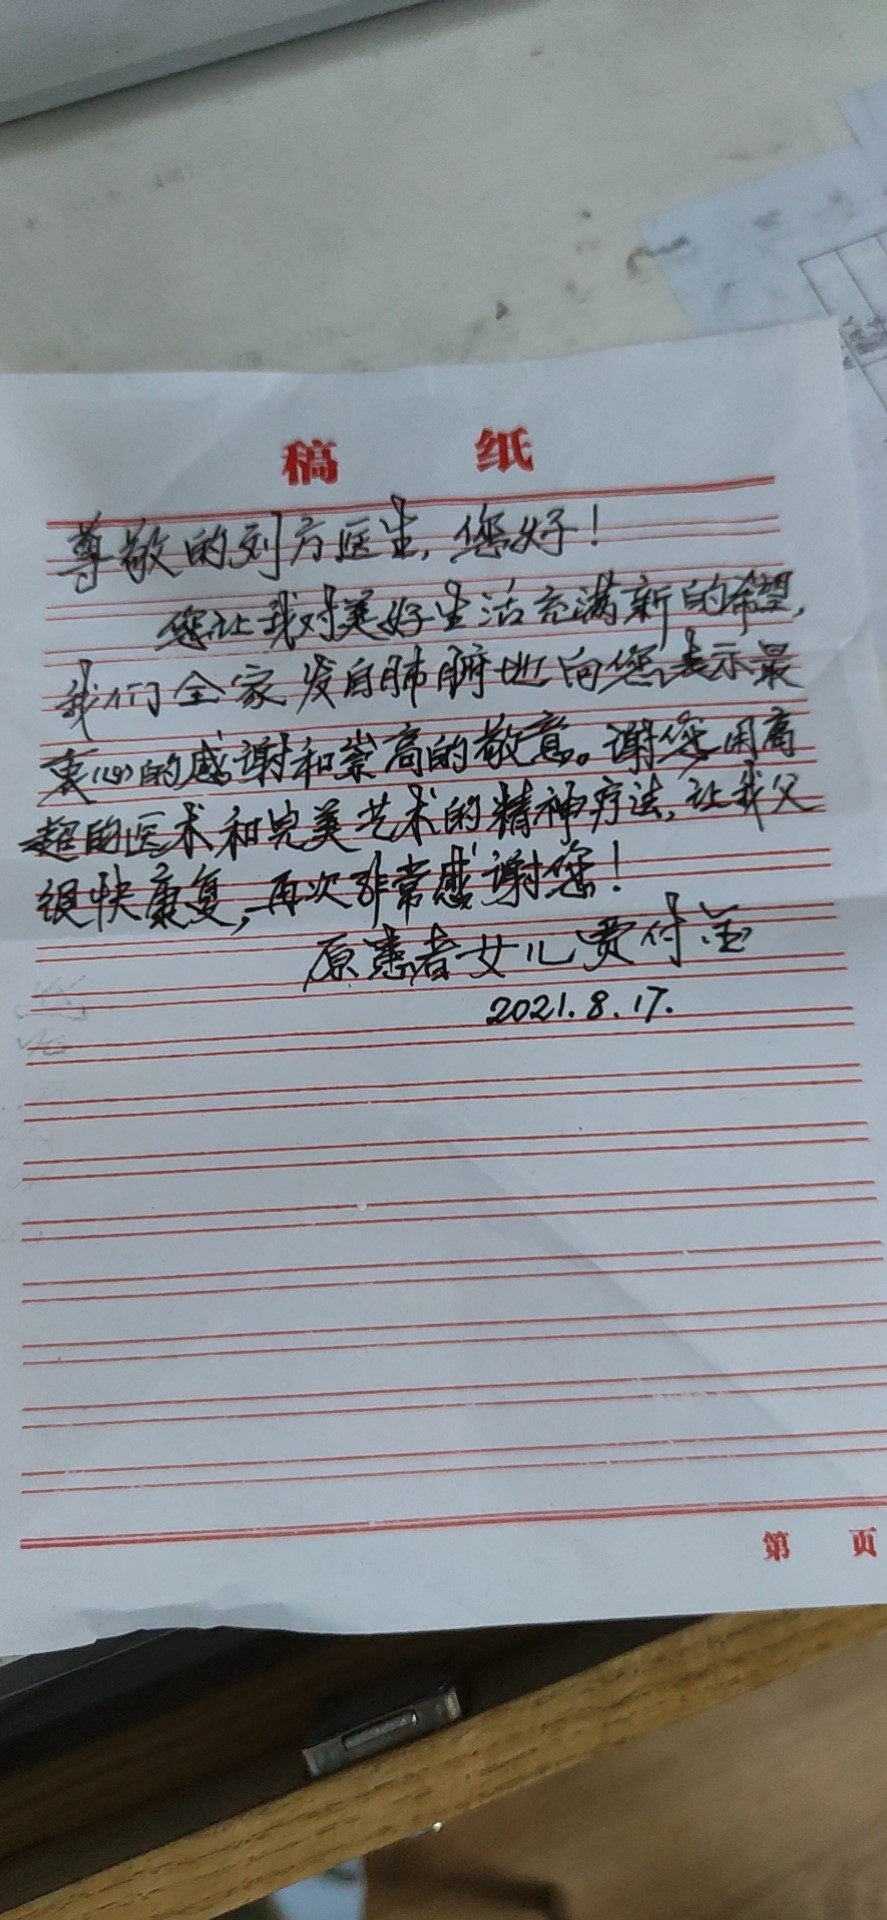 稿 纸
尊敬的刘方医生，您好！
您让我对美好生活充满新的希望，
我们全家发自肺腑地向您表示最
衷心的感谢和崇高的敬意。谢您用高
超的医术和完美艺术的精神疗法，让我父
很快康复，再次非常感谢您！
原患者女儿贾付
2021.8.17.
第 页